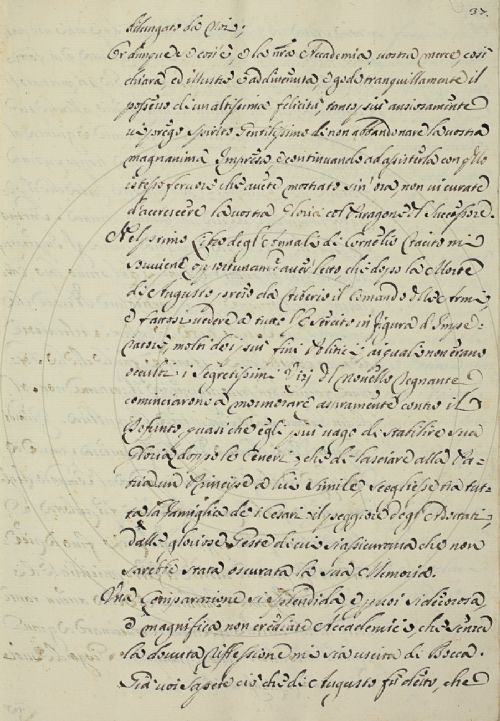 37.
dilungato da Voi;
Or dunque e così è, e la nra Accademia, vostra merce, così
chiara, ed illustre è addivenuta, e gode tranquillamente il
possesso di un altissima felicità, tanto più ansiosamente
vi prego Spirito Gentilissimo di non abbandonare la vostra
magnanima Impresa, e continuando ad assisterla con qllo
istesso fervore che avete mostrato sin'ora non vi curate
d'accrescere la vostra Gloria col Paragone del Successore.
Nel primo Libro degl'Annali di Cornelio Tacito mi
souviene opportunamte aver letto che dopo la Morte
di Augusto preso da Tiberio il Comando dell'Armi,
e fattosi vedere a tutto l'Esercito in figura d'Impe-
ratore, molti de i più fini Politici, ai quali non erano
occulti i segretissimi Vizj del novello Regnante
cominciarono a mormorare amaramente contro il
Defunto, quasi che egli più vago di stabilire sua
Gloria doppo le Ceneri, che di lasciare alla Pa-
tria un Principe a lui simile, sceglie se tra tut-
ta la famiglia de i Cesari il peggiore degl'Adottati,
dalle gloriose Geste di cui s'assicurava che non
sarebbe stata oscurata la sua Memoria.
Una Comparazione sì splendida, e p voi sì decorosa,
e magnifica non crediate Accademici, che senza
la dovuta Riflessione mi sia uscita di Bocca.
Già voi sapete ciò che di Augusto fù detto, che